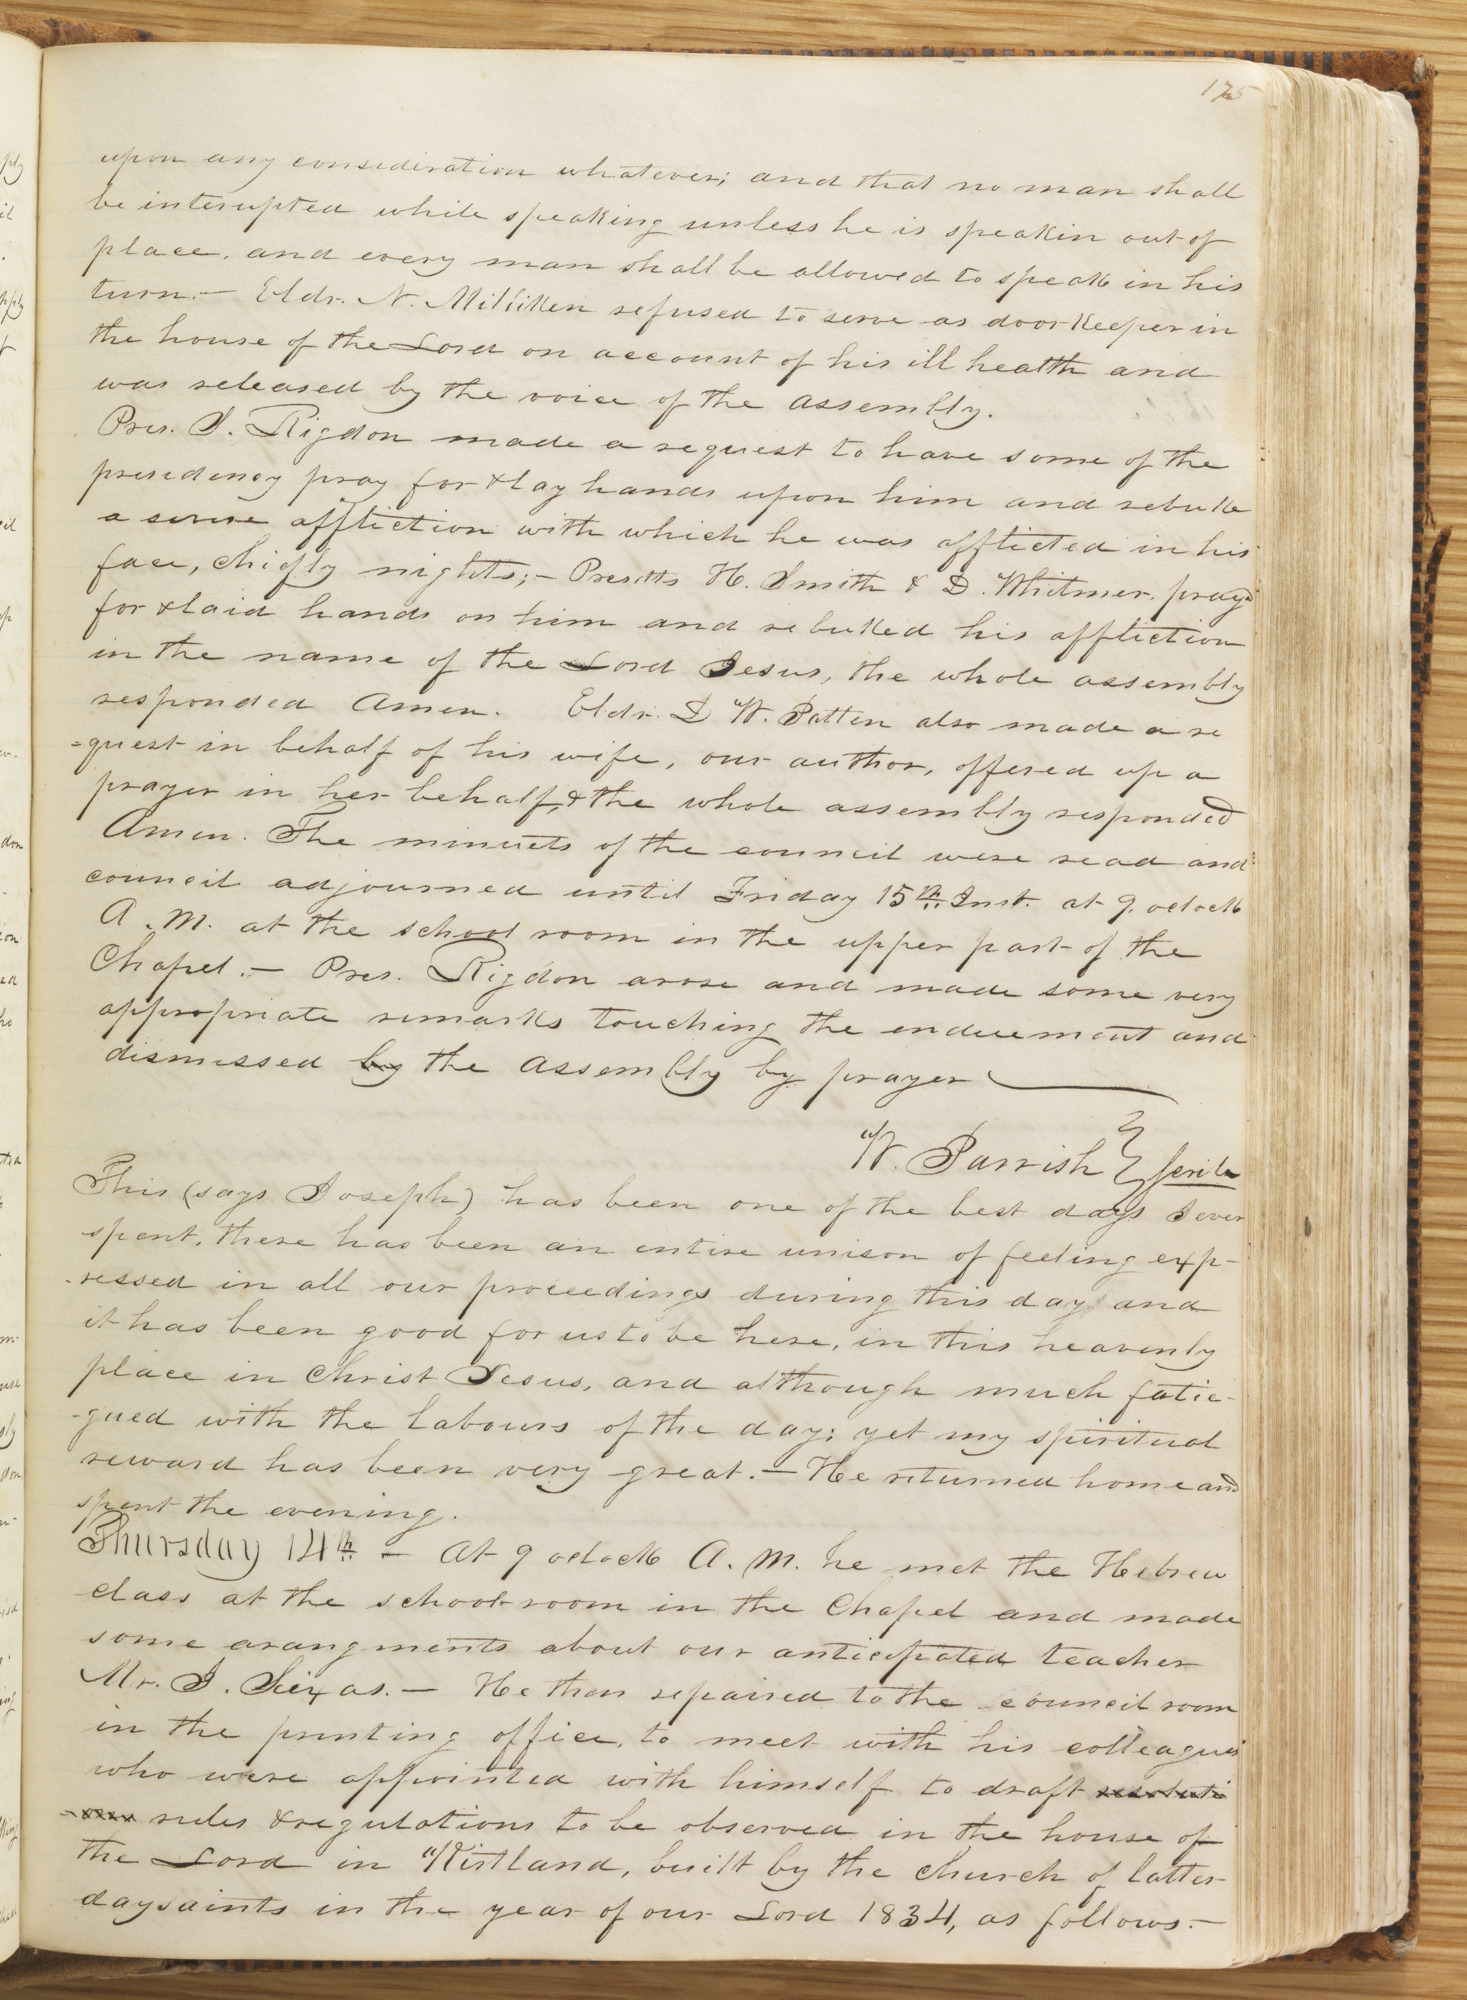 175
upon any consideration whatever; and that no man shall
be interupted while speaking unless he is speakin out of
place, and every man shall be allowed to speak in his
turn.— Eldr. N. Milliken refused to serve as doorkeeper in
the house of the Lord on account of his ill health and
was released by the voice of the assembly.
Pres. S. Rigdon made a request to have some of the
presidency pray for & lay hands upon him and rebuke
a severe affliction with which he was afflicted in his
face, chiefly nights;— Presdts H. Smith & D. Whitmer, prayd
for & laid hands on him and rebuked his affliction
in the name of the Lord Jesus, the whole assembly
responded Amen. Eldr. D W. Patten also made a re
=quest in behalf of his wife, our author, offered up a
prayer in her behalf, & the whole assembly responded
Amen. The minuets of the council were read and
council adjourned until Friday 15th. Inst. at 9. oclock
A. M. at the school room in the upper part of the
Chapel.— Pres. Rigdon arose and made some very
appropriate remarks touching the enduement and
dismissed by the assembly by prayer
W. Parrish } scribe
This (says Joseph) has been one of the best days I ever
spent, there has been an entire unison of feeling exp-
-ressed in all our proceedings during this day and
it has been good for us to be here, in this heavenly
place in Christ Jesus, and although much fatie-
-gued with the labours of the day; yet my spiritual
reward has been very great.— He returned home and
spent the evening.
Thursday 14th. — At 9 oclock A. M. he met the Hebrew
class at the school-room in the Chapel and made
some arangments about our anticipated teacher
Mr. J. Seixas.— He then repaired to the council room
in the printing office, to meet with his colleagues
who were appointed with himself to draft resoluti
-ons rules & regulations to be observed in the house of
the Lord in Kirtland, built by the church of latter
day saints in the year of our Lord 1834, as follows.—